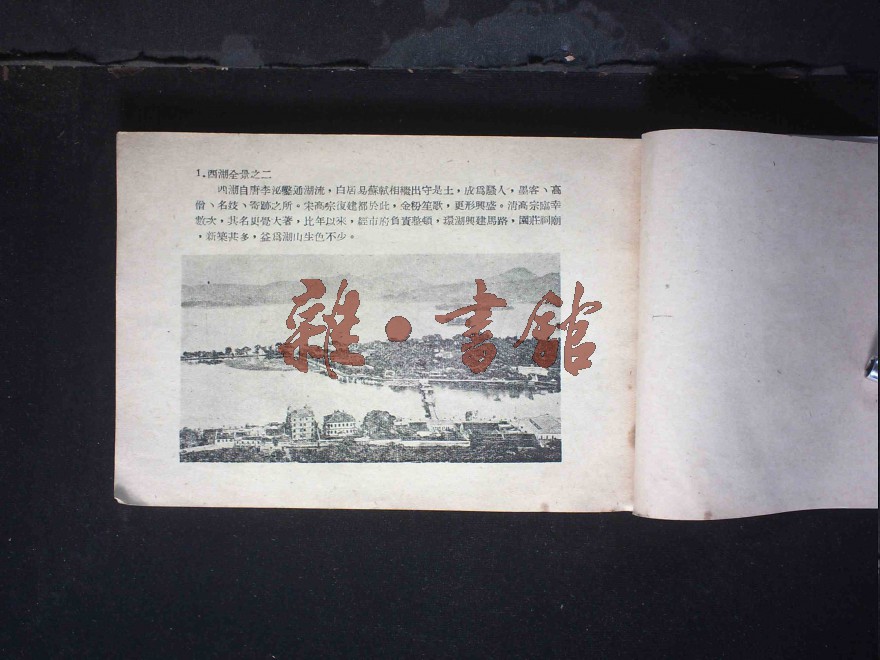 1.西湖全景之二
西湖自唐李泌鑿通湖流，白居易蘇軾相繼出守是土，成爲騷人，墨客、高
僧、名妓、寄跡之所。宋高宗復建都於此，金粉笙歌，更形興盛。清高宗臨幸
數次，其名更覺大著，比年以來，經市府負責整頓，環湖興建馬路，園莊祠廟
，新築甚多，益爲湖山生色不少。
雜·書館